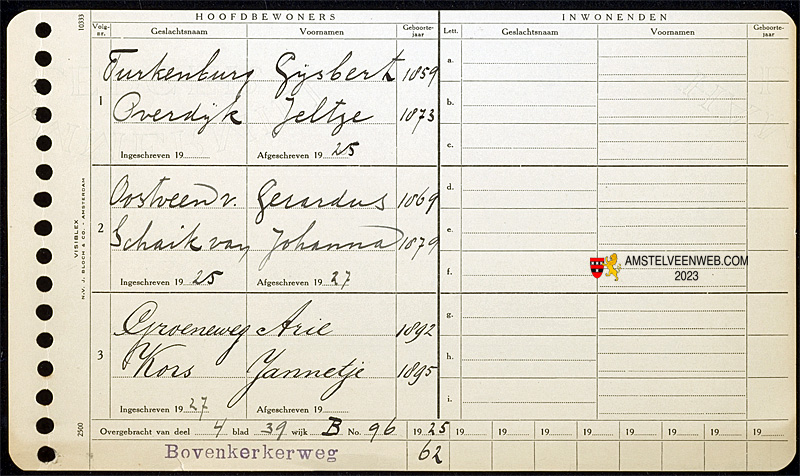 HOOFDBEWONERS
INWONENDEN
Volg-nr.
Geslachtsnaam
Voornamen
Geboorte-jaar
Lett.
Geslachtsnaam
Voornamen
Geboorte-jaar
1
Turkenburg Gijsbert 1859
Overdijk Jeltje 1873
Ingeschreven 19 Afgeschreven 19 25
2
Oostveen v. Gerardus 1869
Schaik van Johanna 1879
Ingeschreven 19 25 Afgeschreven 19 27
3
Groeneweg Arie 1892
Kors Jannetje 1895
Ingeschreven 19 27 Afgeschreven 19
a.
b.
c.
d.
e.
f.
g.
h.
i.
AMSTELVEENWEB.COM
2023
Overgebracht van deel 4 blad 39 wijk B No. 96 19 25 19 19 19 19 19 19 19
Bovenkerkerweg 62
10333
VISIBLEX
N.V. J. BLOCH & CO. - AMSTERDAM
2500